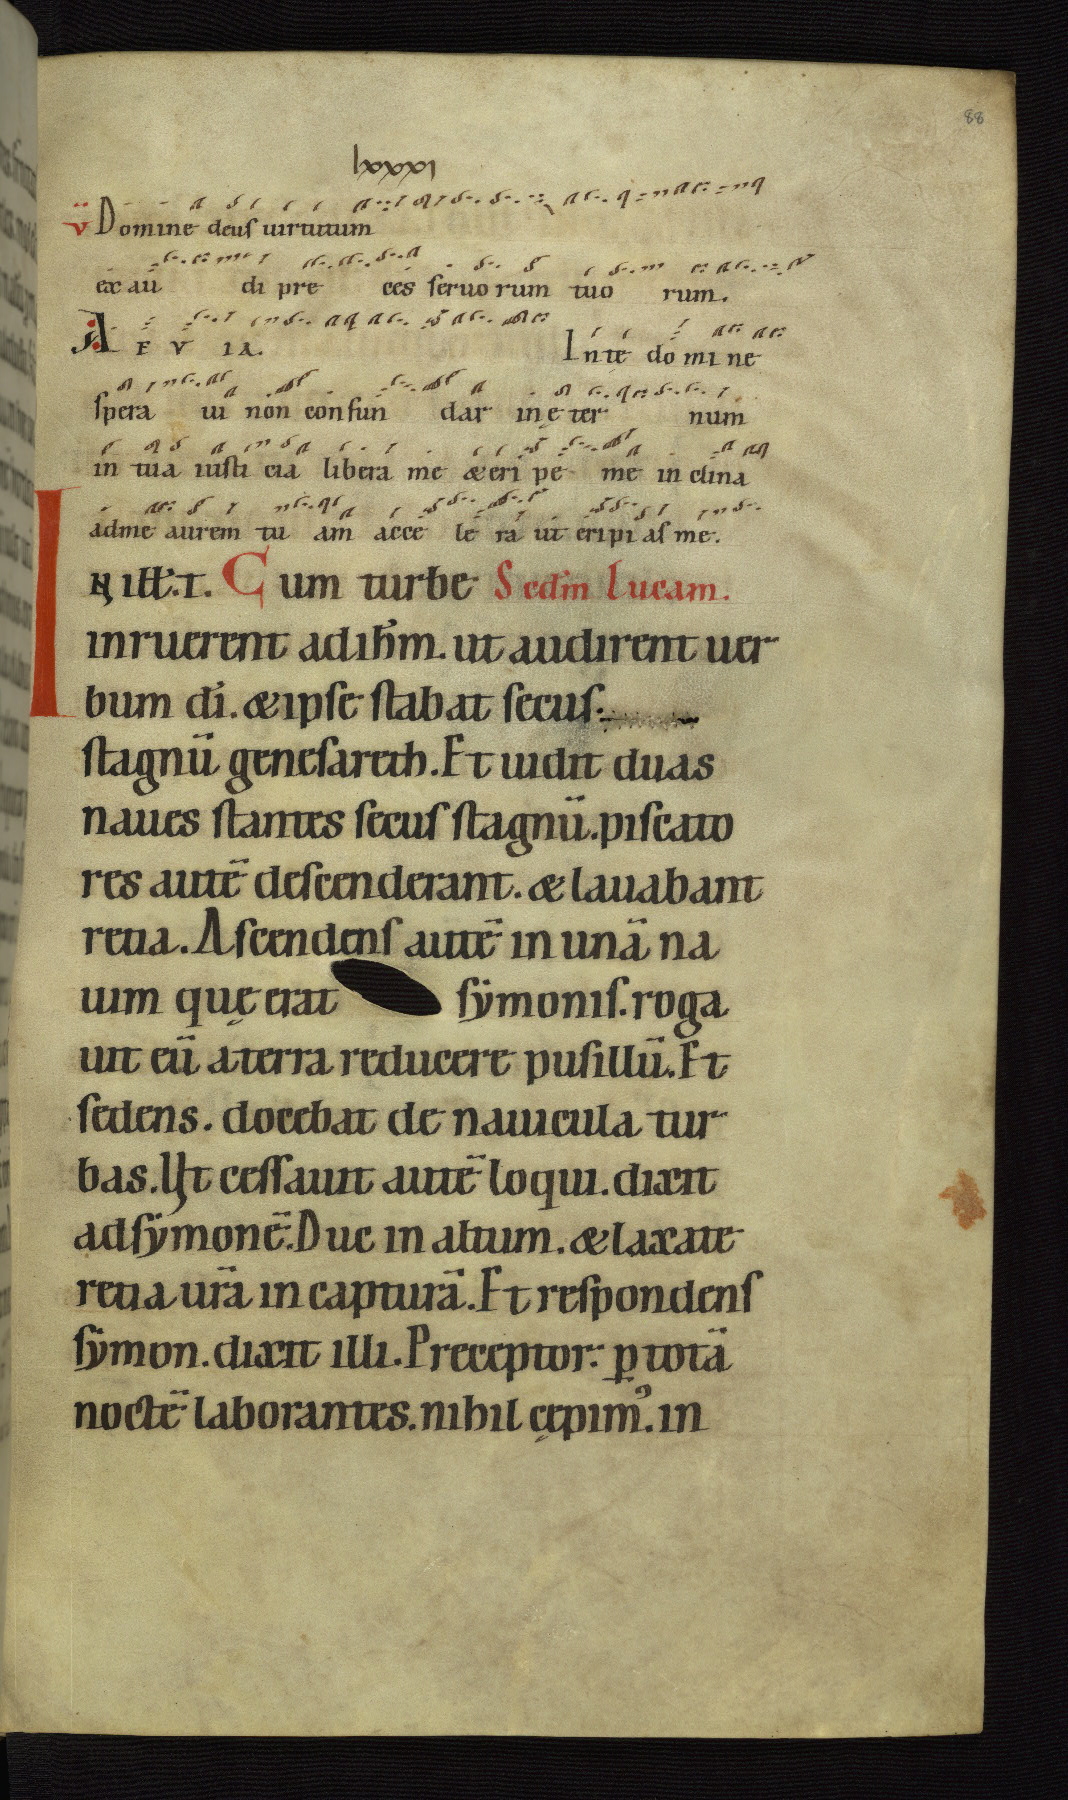 88
lxxxi
v̈ Domine deus uirtutum
ex au di pre ces seruo rum tuo rum.
A E V IA. In te do mi ne
spera ui non confun dar in ęter num
in tua iusti cia libera me & eri pe me in clina
ad me aurem tu am acce le ra ut eripi as me.
IN ill'.t. Cum turbe Scđm Lucam.
inruerent ad ih̄m. ut audirent uer
bum dī. & ipse stabat secus
stagnū genesareth. Et uidit duas
naues stantes secus stagnū. piscato
res autē descenderant. & lauabant
retia. Ascendens autē in unā na
uim quę erat symonis. roga
uit eū a terra reducere pusillū. Et
sedens. docebat de nauicula tur
bas. Ut cessauit autē loqui. dixit
ad symonē. Duc in altum. & laxate
retia urā in capturā. Et respondens
symon. dixit illi. Preceptor: ꝑ totā
noctē laborantes. nihil cępim᾿. in